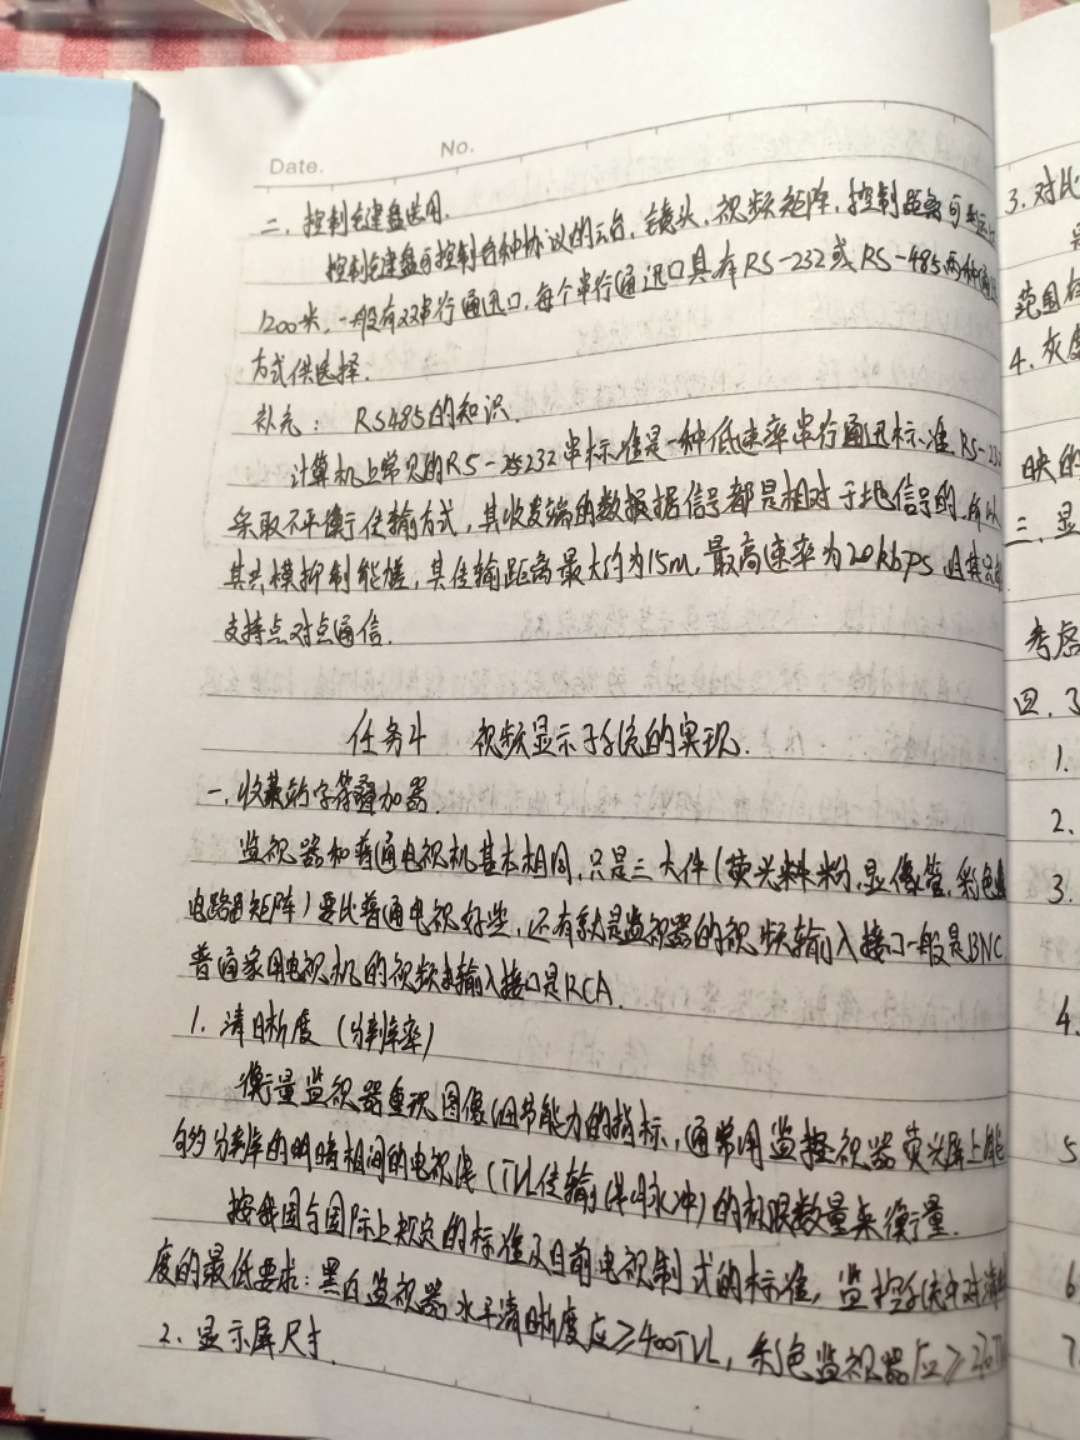 Date.
No.
二、控制键盘选用.
控制键盘可控制各种协议的云台，镜头，视频矩阵，控制距离可
1200米，一般有双串行通迅口，每个串行通迅口具有RS-232或RS-485两种通
方式供选择.
补充： RS485的知识.
计算机上常见的RS-232串标准是一种低速率串行通迅标准 RS-23
采取不平衡传输方式，其收发端的数据信号都是相对于地信号的，所以
其共模抑制能差，其传输距离最大约为15m，最高速率为20kbps 且其只
支持点对点通信.
任务4 视频显示子系统的实现.
一、收藏的字符叠加器.
监视器和普通电视机基本相同，只是三大件(荧光粉，显像管，彩色
电路矩阵)要比普通电视好些，还有就是监视器的视频输入接口一般是BNC
普通家用电视机的视频输入接口是RCA.
1. 清晰度 (分辨率)
衡量监视器重现图像细节能力的指标，通常用监视器荧光屏上能
够分辨的明暗相间的电视线(TVL传输 脉冲)的极限数量来衡量.
按我国与国际上规定的标准及目前电视制式的标准，监控系统中对清
度的最低要求：黑白监视器水平清晰度应≥400TVL，彩色监视器应≥
2. 显示屏尺寸.
3. 对比
范围
4. 灰度
映的
三、显
考虑
四、
1.
2.
3.
4.
5
6
7